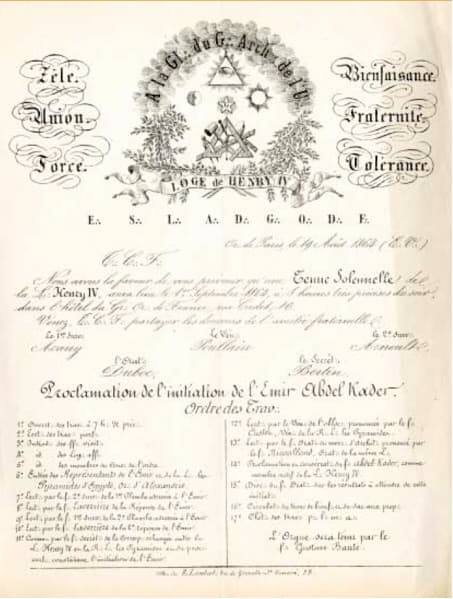 A la Gl∴ du G∴ Arch∴ de l'U∴
Zèle.
Union.
Force.
Bienfaisance.
Fraternité.
Tolérance.
LOGE de HENRY IV
E∴ S∴ L∴ A∴ D∴ G∴ O∴ D∴ F∴
Or∴ de Paris, le 19 Août 1864 (E∴ V∴)
T∴ C∴ F∴
Nous avons la faveur de vous prévenir qu'une Tenue Solennelle de
la L∴ Henry IV, aura lieu le 1er Septembre 1864, à 7 heures très précises du soir
dans l'hôtel du Gr∴ Or∴ de France, rue Cadet, 16.
Venez, T∴ C∴ F∴ partager les douceurs de l'amitié fraternelle.
Le 1er Surv∴
Le Vén∴
le 2e Surv∴
Acarry
Poullain
Arnoult
l'Orat∴
le Secrét∴
Duboc
Bertin
Proclamation de l'initiation de l'Emir Abdel Kader.
Ordre des Trav∴
1º Ouvert∴ des trav∴ à 7 h∴ de préc∴
2º Lect∴ des trav∴
3º Entrée des ff∴ visit∴
4º id des Loges aff∴
5º id des membres de l'ordre
6º Entrée des Représentants de l'Emir et de la L∴ les
Pyramides d'Egypte, Or∴ d'Alexandrie.
7º Lect∴ par le f∴ 2e Surv∴ de la 1re Planche adressée à l'Emir
8º Lect∴ par le f∴ Laverrière de la Réponse de l'Emir.
9º Lect∴ par le f∴ 1er Surv∴ de la 2e Planche adressée à l'Emir
10º Lect∴ par le f∴ Laverrière de la 2e réponse de l'Emir
11º Comm∴ par le f∴ Secrét∴ de la Corresp∴ échangée entre la
L∴ Henry IV et la R∴ L∴ les Pyramides
constituve l'initiation de l'Emir
12º Lect∴ par le Vén∴ de l'alloc∴ prononcée par le f∴
Vén∴ de la R∴ L∴ les Pyramides.
13º Lect∴ par le f∴ Orat∴ du morc∴ d'archit∴ prononcé par
le f∴ Orat∴ de la même L∴
14º Proclamation et consécrat∴ du f∴ Abdel Kader, comme
membre actif de la L∴ Henry IV
15º Disc∴ du f∴ Orat∴ sur les résultats à attendre de cette
initiat∴
16º Circulat∴ du tronc de bienf∴ et du sac aux propos∴
17º Clôt∴ des trav∴
L'Orgue sera tenu par le
f∴ Gustave Baule.